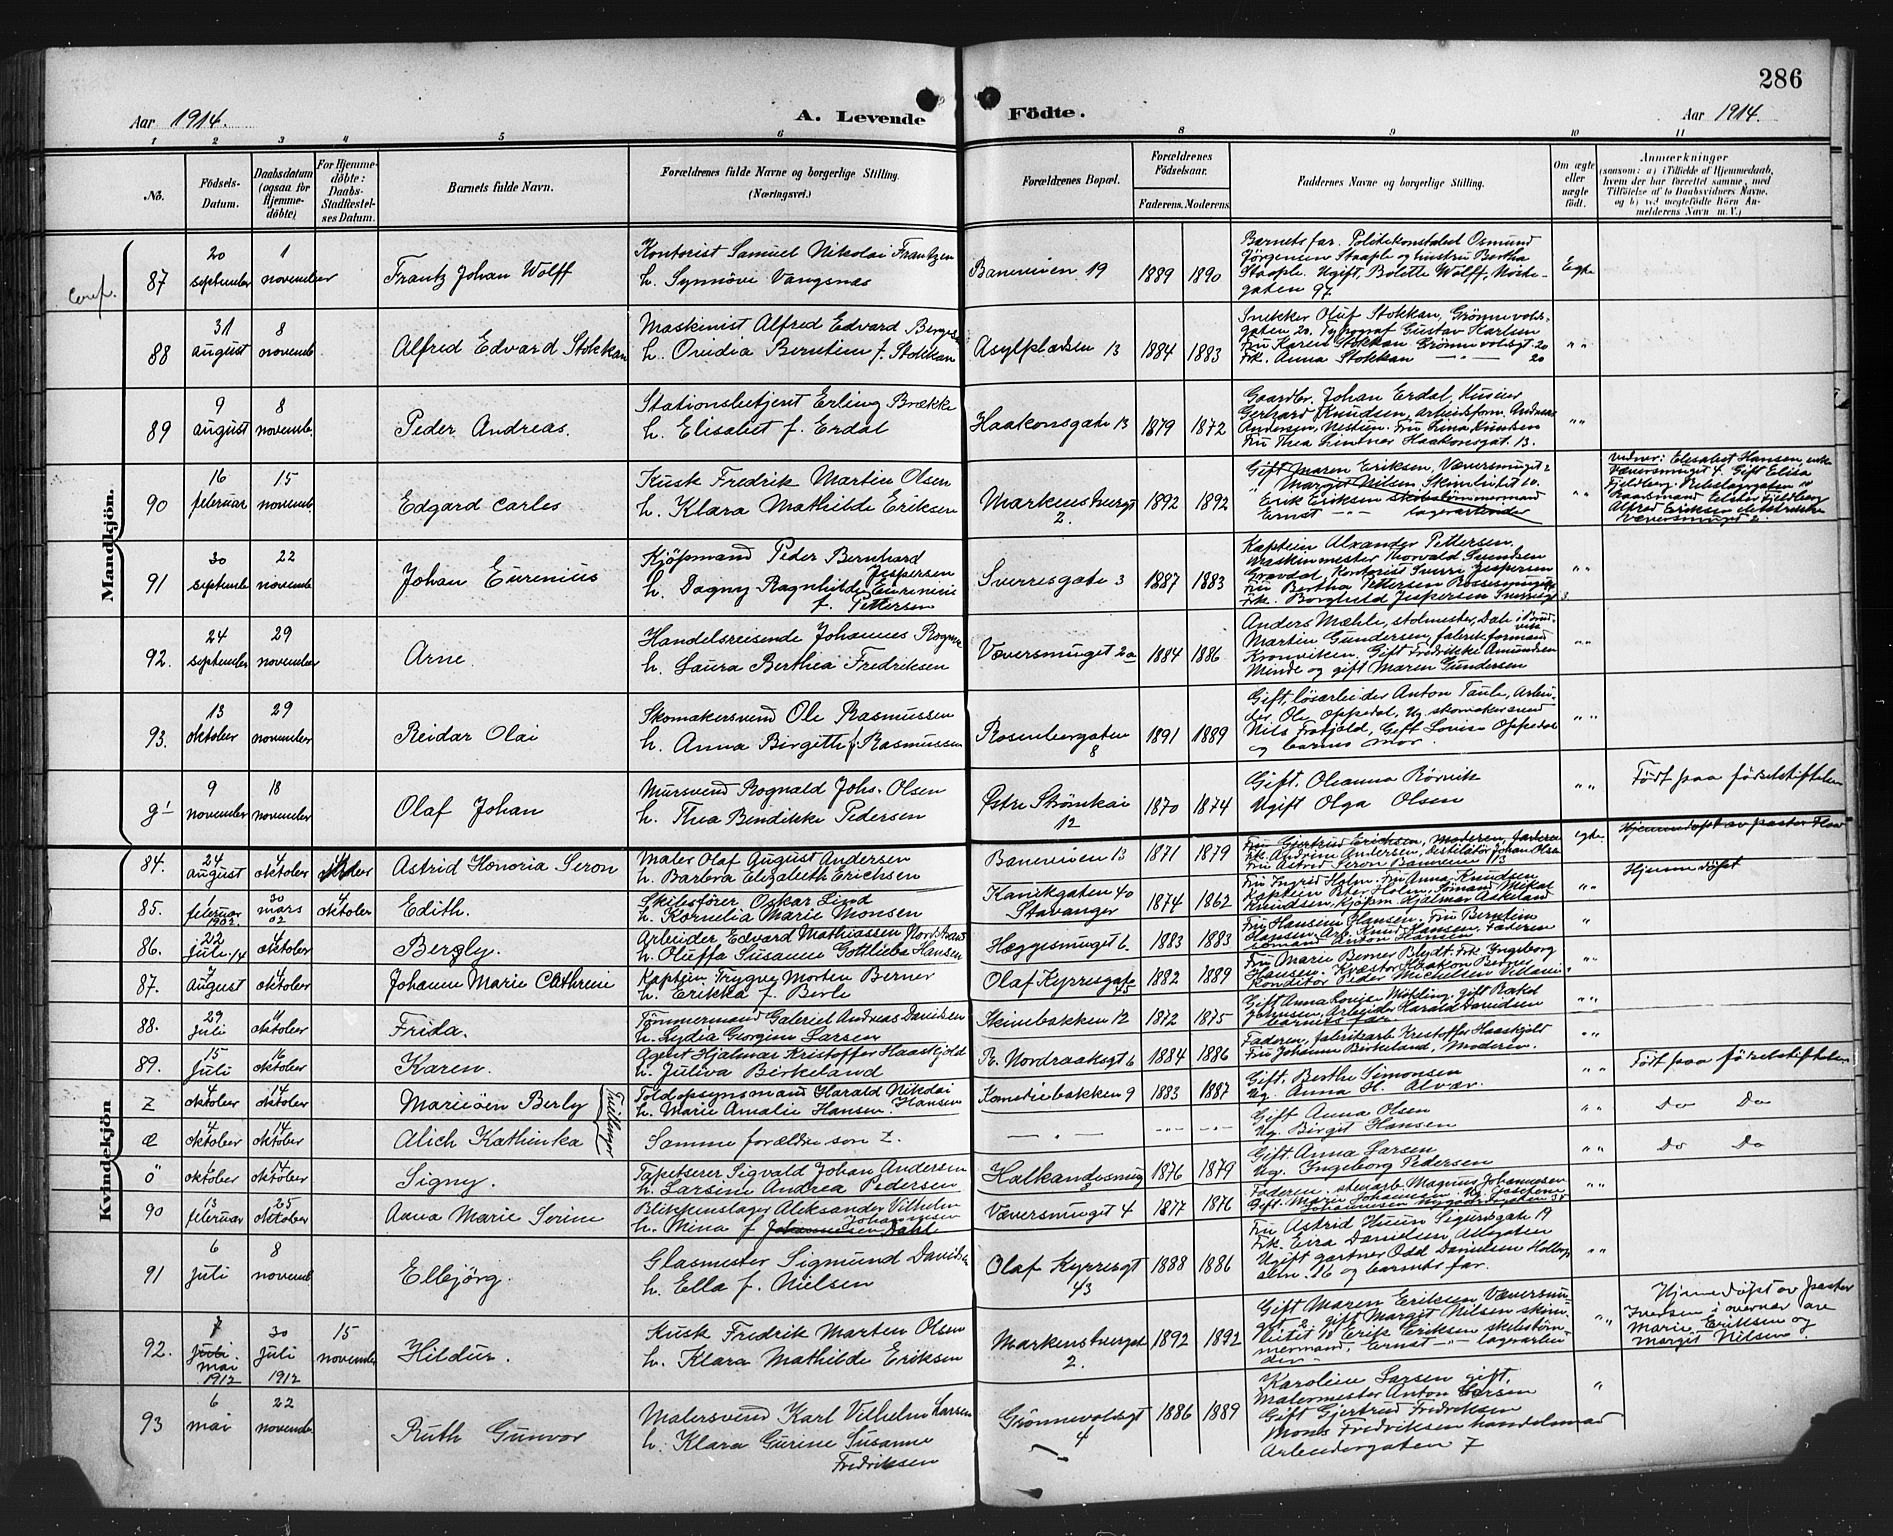 286
Aar 1914.
A. Levende Födte.
Aar 1914.
1 2 3 4 5 6 8 9 10 11
No.
Födsels-Datum.
Daabsdatum (ogsaa for Hjemme-döbte)
For Hjemme-döbte: Daabs-Stadfæstel-ses Datum.
Barnets fulde Navn.
Forældrenes fulde Navne og borgerlige Stilling. (Næringsvei.)
Forældrenes Bopæl.
Forældrenes Födselsaar.
Faderens. Moderens.
Faddernes Navne og borgerlige Stilling.
Om ægte eller uægte födt.
Anmærkninger
(saasom: a) i Tilfælde af Hjemmedaab,
hvem der har forrettet samme, med
Tilföielse af to Daabsvidners Navne,
og b) ved uægtefödte Börn An-
melderens Navn m. V.)
Mandkjön.
Conf.
87
20 september
1 november
Frantz Johan Wolff
Kontorist Samuel Nikolai Frantzen
h. Synnöve Vangsnæs
Baneveien 19
1889 1890
Barnets far. Politikonstabel Osmund
Jörgensen Staaple og hustru Bertha
Staaple. Ugift. Bolette Wolff, Nöste-
gaten 97
Egte
88
31 august
8 novemb.
Alfred Edvard Stokkan
Maskinist Alfred Edvard Berges
h. Ovidia Berntine f. Stokkan
Asylpladsen 13
1884 1883
Snekker Oluf Stokkan, Grönnevolds-
gaten 20. Typograf Gustav Karlsen
Fru Karen Stokkan Grönnevoldsgt. 20
Frk. Anna Stokkan — " — 20
" "
89
9 august
8 novembe.
Peder Andreas.
Stationsbetjent Erling Brække
h. Elisabet f. Erdal
Haakonsgate 13
1879 1872
Gaardbr. Johan Erdal, Huseier
Gerhard Knudsen, arbeidsform. Andreas
Andersen, Nestun. Fru Lina Knudsen
Fru Thea Lindner Haakonsgat. 13.
" "
90
16 februar
15 novemb.
Edgard Carlos
Kusk Fredrik Martin Olsen
h. Klara Mathilde Eriksen
Markens tvergt 2.
1892 1892
Gift Maren Eriksen, Væversmuget 2
" Margit Nilsen Skinlivitet 10.
Erik Eriksen skibstömmermand
Ernst — " — lagerarbeider
" "
vidner: Elisabet Hansen, enke
Væversmuget 4. Gift Elisa
Fjeldberg. Rebslagergaten 10
Baatsmand Elster Fjeldberg
Alfred Eriksen elektriker
Væversmuget 2.
91
30 september
22 novembe
Johan Eurenius
Kjöpmand Peder Bernhard
Jespersen
h. Dagny Ragnhilde Eurenius
f. Pettersen
Sverresgate 3
1887 1883
Kaptein Alxander Pettersen,
Maskinmester Thorvald Svendsen
Gravdal, Kontorist Sverre Jespersen
Fru Bertha Pettersen
Frk. Borghild Jespersen Sverresgt 3
" "
92.
24 september
29 november
Arne.
Handelsreisende Johannes Rogne
h. Laura Berthea Fredriksen
Væversmuget 2a
1884 1886
Anders Mæhle, stolmester, Dale i Brud-
vik
Martin Gundersen, fabrikformand
Kronviken. Gift Fredrikke Amundsen
Minde og gift Maren Gundersen
" "
93.
13 oktober
29 november
Reidar Olai
Skomakersvend Ole Rasmussen
h. Anna Birgithe f. Rasmussen
Rosenbergaten 8
1891 1889
Gift, lösarbeider Anton Taule, Arbei-
der Ole Oppedal, Ug. skomakersvend
Nils Fratjold, Gift Lovise Oppedal
og barnets mor.
" "
g
9 november
18 november
Olaf Johan
Mursvend Rognald Johs. Olsen
h. Thea Bendikke Pedersen
Östre Strömkai 12
1870 1874
Gift. Oleanna Rörvik
Ugift Olga Olsen
" "
Födt paa födselstiftelsen
Kvindekjön
84.
24 august
4 oktober
Astrid Honoria Seron
Maler Olaf August Andersen
h. Barbra Elizabeth Erichsen
Baneveien 13
1871 1879
Fru Gjertrud Erichsen, Moderen,
Frk. Andrine Andersen, Destilatör Johan Olsen
Fru Astrid Seron Baneveien 113
egte.
Hjemmedöpt av pastor Flod
85.
1 februar 1902
30 mars 02
4 oktober
Edith.
Skibsförer Oskar Lind
h. Kornelia Marie Monsen
Kanikgaten 40
Stavanger
1874 1862
Fru Ingrid Holm. Fru Anna Knudsen
Kaptein Peter Holm, Sömand Mikal
Knudsen, Kjöpm. Hjalmar Askeland
" "
Hjemmedöpt
86.
22 Juli 14
4 oktober
Bergly.
Arbeider Edvard Mathiassen Nordstrand
h. Oluffa Susanne Gottlieba Hansen
Hæggesmuget 6.
1883 1883
Fru Hansine Hansen. Fru Berntine
Olaussen, Arb. Knud Hansen. Faderen
Sömand Anton Hansen
"
87.
7 august
4 oktober
Johanne Marie Cathrine
Kaptein Trygve Morten Berner
h. Erikka f. Berle
Olaf Kyrresgate 45
1882 1889
Fru Marie Berner Blydt. Frk. Ingeborg
Hansen. Kvæstor Haakon Berner
Konditor Peder Michelsen
" "
88.
29 Juli
4 oktober
Frida.
Tömmermand Gabriel Andreas Davidsen
h. Lydia Georgine Larsen
Skivebakken 12
1872 1875
Gift Anna Lovise Mökling. gift Rakel
Johnsen, Arbeider Harald Davidsen
barnets far
" "
89.
15 Juli
16 oktober
Karen.
Agent Hjalmar Kristoffer Haaskjold
h. Juliva Birkeland
R. Nordraaksgt 6
1884 1886
Faderen, fabrikarb. Kristoffer Haaskjold
Fru Johanne Birkeland, Moderen.
" "
Födt paa födselstiftelsen
z
4 oktober
14 oktober
Marieöen Berly
Tvillinger
Toldopsynsmand Harald Nikolai
h. Marie Amalie Hansen. Hansen
Komediebakken 9
1883 1887
Gift. Berthe Simonsen
Ug. Anna H. Alvær.
" "
Do Do
æ
4 oktober
14 oktober
Alich Kathinka
Samme forældre som Z.
— " —
— " — — " —
Gift Anna Olsen
Ug. Birgit Hansen
" "
Do Do
ö
1 oktober
14 oktober
Signy.
Tapetserer Sigvald Johan Andersen
h. Larsine Andrea Pedersen
Halkandesmug 8
1876 1879
Gift Anna Larsen
Ug. Ingeborg Pedersen
" "
90
13 februar
25 oktober
Anna Marie Sorine
Blikkenslager Aleksander Vilhelm
Johannesen
h. Mina f. Johannesen Dahl
Væversmuget 4
1877 1876
Faderen, stenarb. Magnus Johannesen
Gift. Marie Johannesen. Ug. Josefine
Johannesen Nygaardsgaten 35
91
6 juli
8 novemb
Elbjörg.
Glasmester Sigmund Davidsen
h. Ella f. Nielsen
Olaf Kyrresgt 43
1888 1886
Fru Astrid Huun Sigurdsgate 19
Frk. Eira Danielsen Allegaten
Ugift gartner Odd Danielsen Holbergs
alm. 16 og barnets far.
" "
92.
7 Juli mai 1912
30 Juli 1912
15 novembe
Hildur.
Kusk Fredrik Marten Olsen
h. Klara Mathilde Eriksen
Markens tverget 2.
1892 1892
Gift Maren Eriksen Væversmu-
get 2. gift Margit Nilsen skin-
livitet 10 Erik Eriksen skibstöm-
mermand, Ernst — " — lagerarbei-
der
" "
Hjemmedöpt av pastor
Ivedsen i overvær av
Marie Eriksen og
Margit Nilsen.
93
6 mai
22 novembe.
Ruth Gunvor
Malersvend Karl Vilhelm Larsen
h. Klara Gurine Susanne
Fredriksen
Grönnevoldsgt 4
1886 1889
Karoline Larsen gift,
Malermester Anton Larsen
Gift Gjertrud Fredriksen
Mons Fredriksen handelsmad
Arbeidergaten 7
"